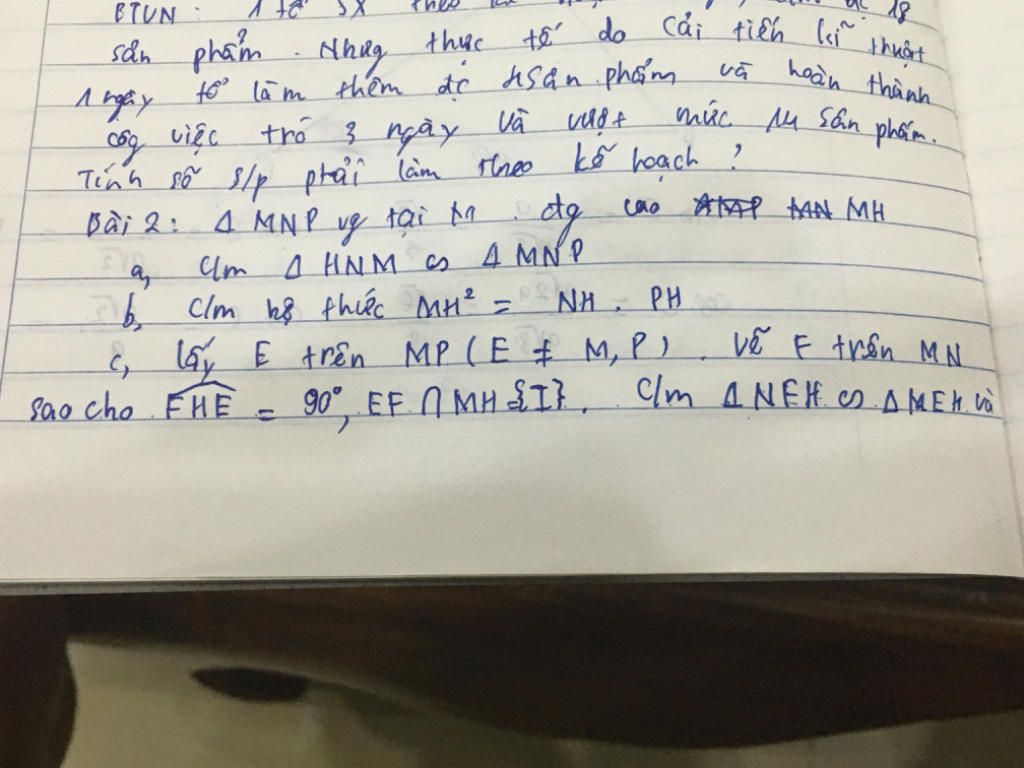 BTVN: 1 tổ SX theo 18
sản phẩm. Nhưg thực tế do cải tiến kĩ thuật
1 ngày tổ làm thêm đc 4 sản phẩm và hoàn thành
côg việc trớ 3 ngày và vượt mức 14 sản phẩm.
Tính số s/p phải làm theo kế hoạch?
Bài 2: Δ MNP vg tại M. đg cao MH
a, C/m Δ HNM ∽ Δ MNP
b, C/m hệ thức MH² = NH. PH
c, lấy E trên MP (E ≠ M, P). Vẽ F trên MN
sao cho FHE = 90°, EF ∩ MH {I}. C/m Δ NFH ∽ Δ MEH và